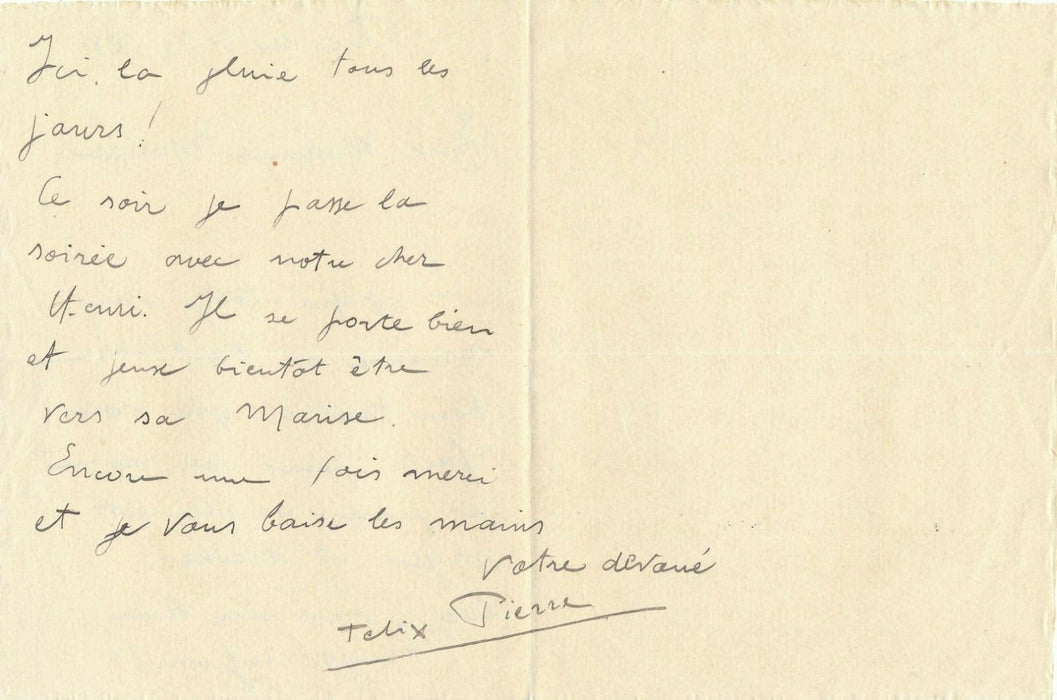 Ici, la pluie tous les
jours !
Ce soir je passe la
soirée avec notre cher
Henri. Il se porte bien
et pense bientôt être
vers sa Marise.
Encore une fois merci
et je vous baise les mains
Votre dévoué
Felix Pierre